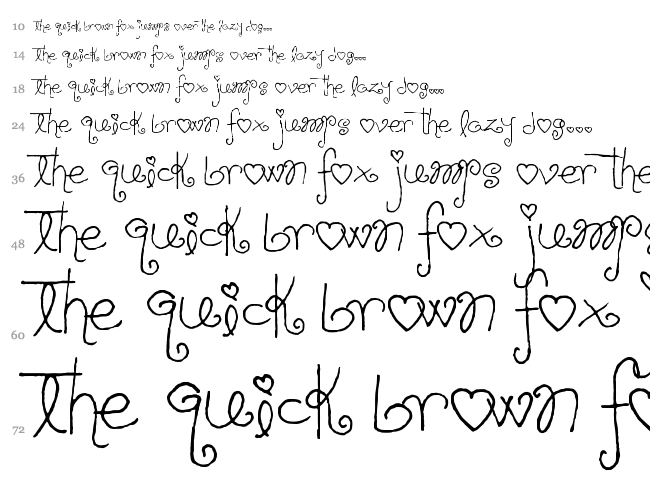 10 the quick brown fox jumps over the lazy dog...
14 the quick brown fox jumps over the lazy dog...
18 the quick brown fox jumps over the lazy dog...
24 the quick brown fox jumps over the lazy dog...
36 the quick brown fox jumps over the
48 the quick brown fox jumps
60 the quick brown fox
72 the quick brown fo